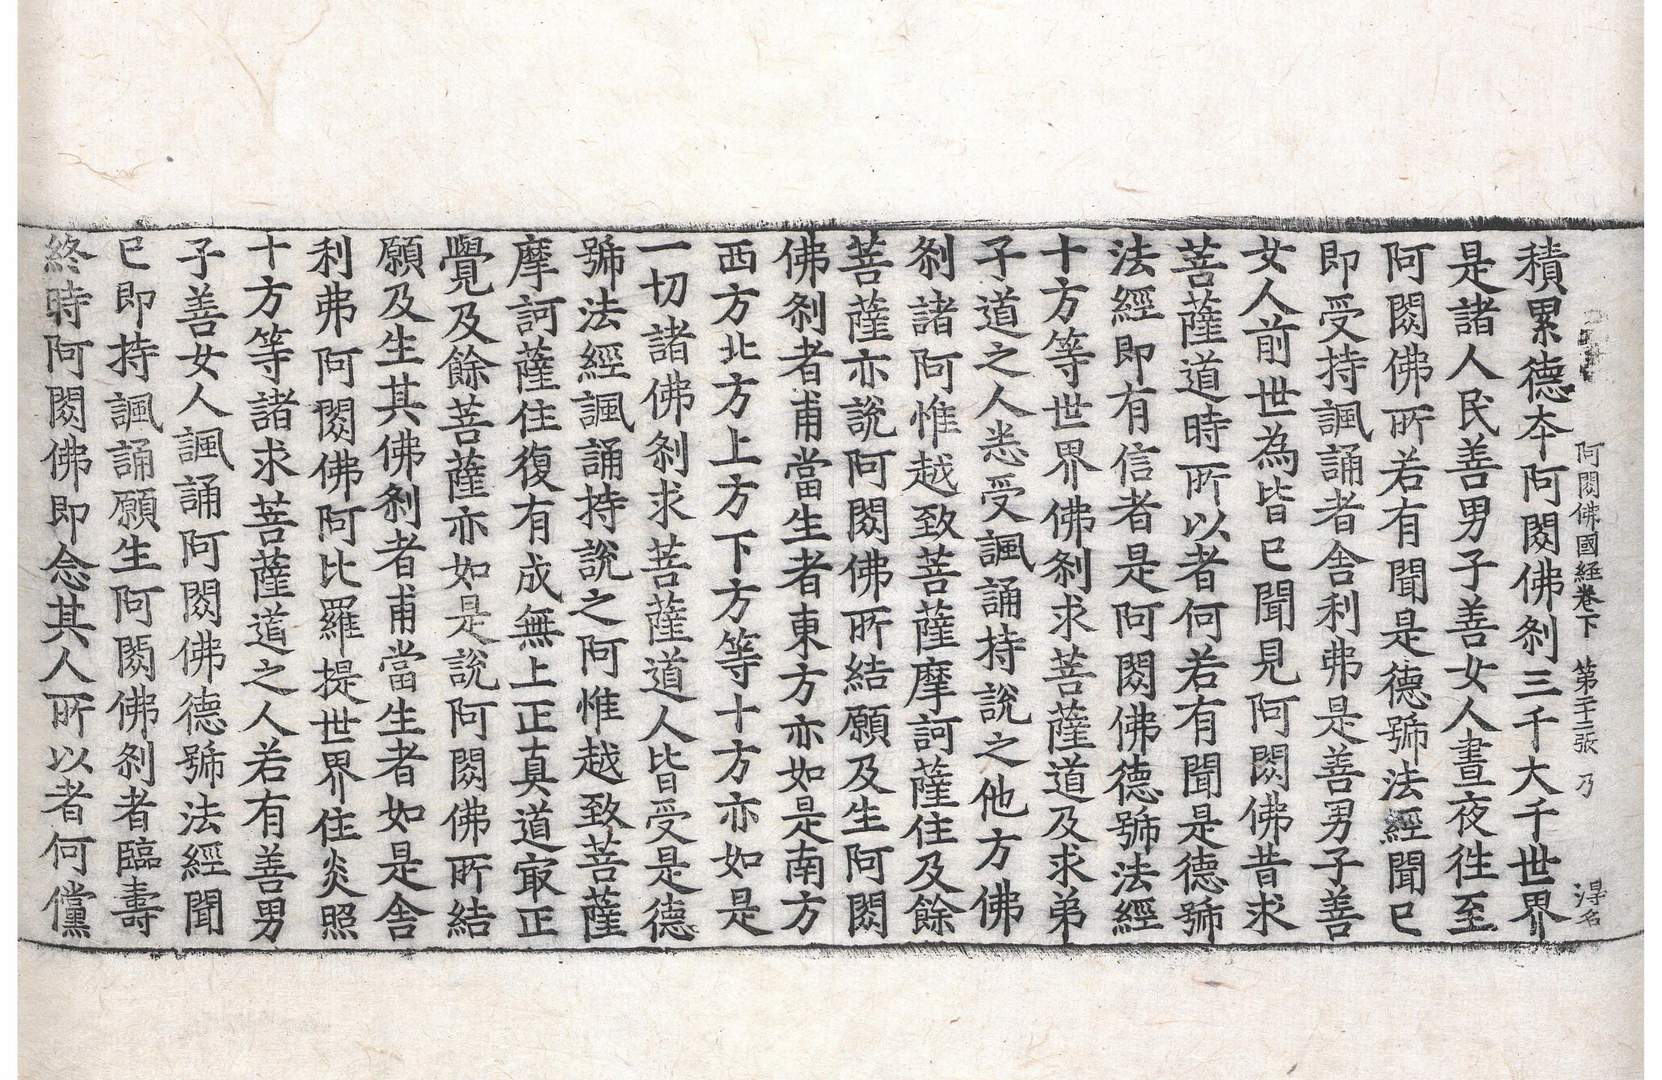 阿閦佛國經卷下　第二十三張　乃　淂名
積累德本阿閦佛刹三千大千世界
是諸人民善男子善女人晝夜徃至
阿閦佛所若有聞是德號法經聞已
即受持諷誦者舍利弗是善男子善
女人前世為皆已聞見阿閦佛昔求
菩薩道時所以者何若有聞是德號
法經即有信者是阿閦佛德號法經
十方等世界佛刹求菩薩道及求弟
子道之人悉受諷誦持說之他方佛
刹諸阿惟越致菩薩摩訶薩住及餘
菩薩亦說阿閦佛所結願及生阿閦
佛刹者甫當生者東方亦如是南方
西方北方上方下方等十方亦如是
一切諸佛刹求菩薩道人皆受是德
號法經諷誦持說之阿惟越致菩薩
摩訶薩住復有成無上正真道㝡正
覺及餘菩薩亦如是說阿閦佛所結
願及生其佛刹者甫當生者如是舍
利弗阿閦佛阿比羅提世界住炎照
十方等諸求菩薩道之人若有善男
子善女人諷誦阿閦佛德號法經聞
已即持諷誦願生阿閦佛刹者臨壽
終時阿閦佛即念其人所以者何儻